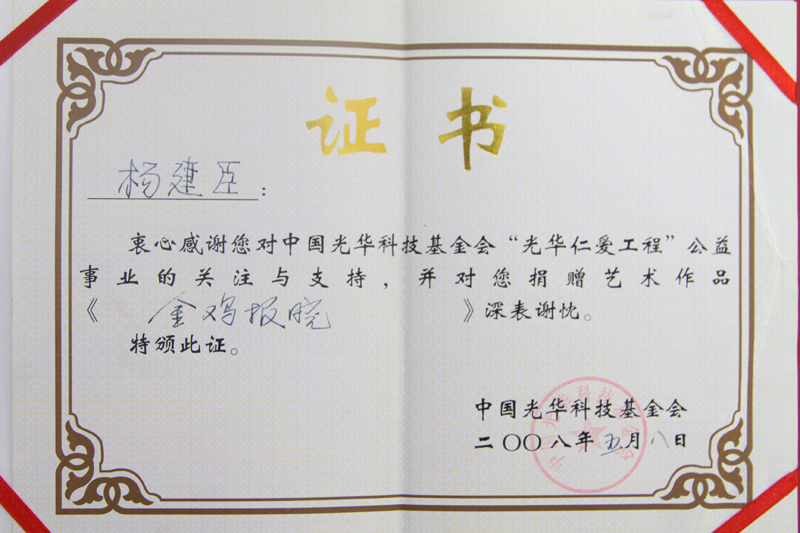 证书
杨建臣：
衷心感谢您对中国光华科技基金会“光华仁爱工程”公益
事业的关注与支持，并对您捐赠艺术作品
《金鸡报晓》深表谢忱。
特颁此证。
中国光华科技基金会
二〇〇八年五月八日